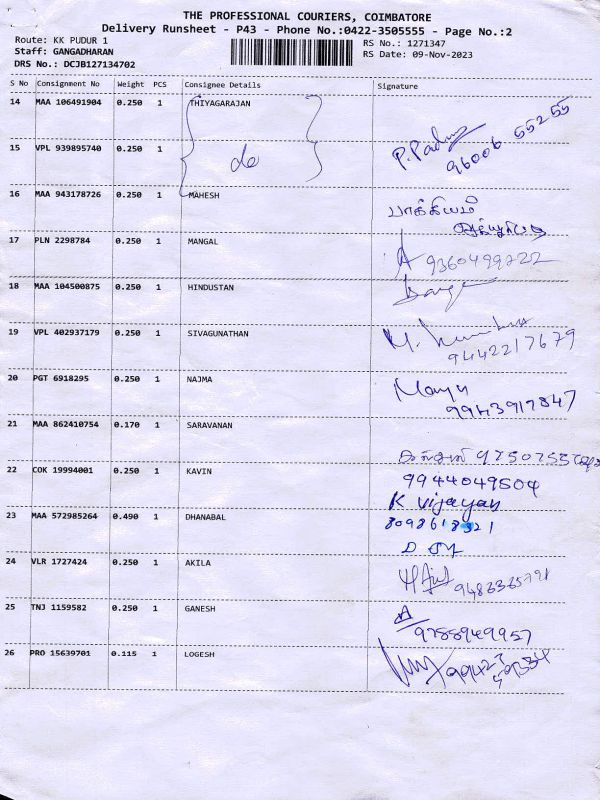 THE PROFESSIONAL COURIERS, COIMBATORE
Delivery Runsheet - P43 - Phone No.:0422-3505555 - Page No.:2
Route: KK PUDUR 1
RS No.: 1271347
Staff: GANGADHARAN
RS Date: 09-Nov-2023
DRS No.: DCJB127134702
S No Consignment No Weight PCS Consignee Details Signature
14 MAA 106491904 0.250 1 THIYAGARAJAN
do
15 VPL 939895740 0.250 1
P. Padma
96006 55255
16 MAA 943178726 0.250 1 MAHESH
பாக்கியம்
17 PLN 2298784 0.250 1 MANGAL
9360499222
18 MAA 104500875 0.250 1 HINDUSTAN
19 VPL 402937179 0.250 1 SIVAGUNATHAN
9442217679
20 PGT 6918295 0.250 1 NAJMA
9943917847
21 MAA 862410754 0.170 1 SARAVANAN
22 COK 19994001 0.250 1 KAVIN
9944049504
K Vijayan
23 MAA 572985264 0.490 1 DHANABAL
8098618321
24 VLR 1727424 0.250 1 AKILA
9486365791
25 TNJ 1159582 0.250 1 GANESH
9788949957
26 PRO 15639701 0.115 1 LOGESH
99423
59334